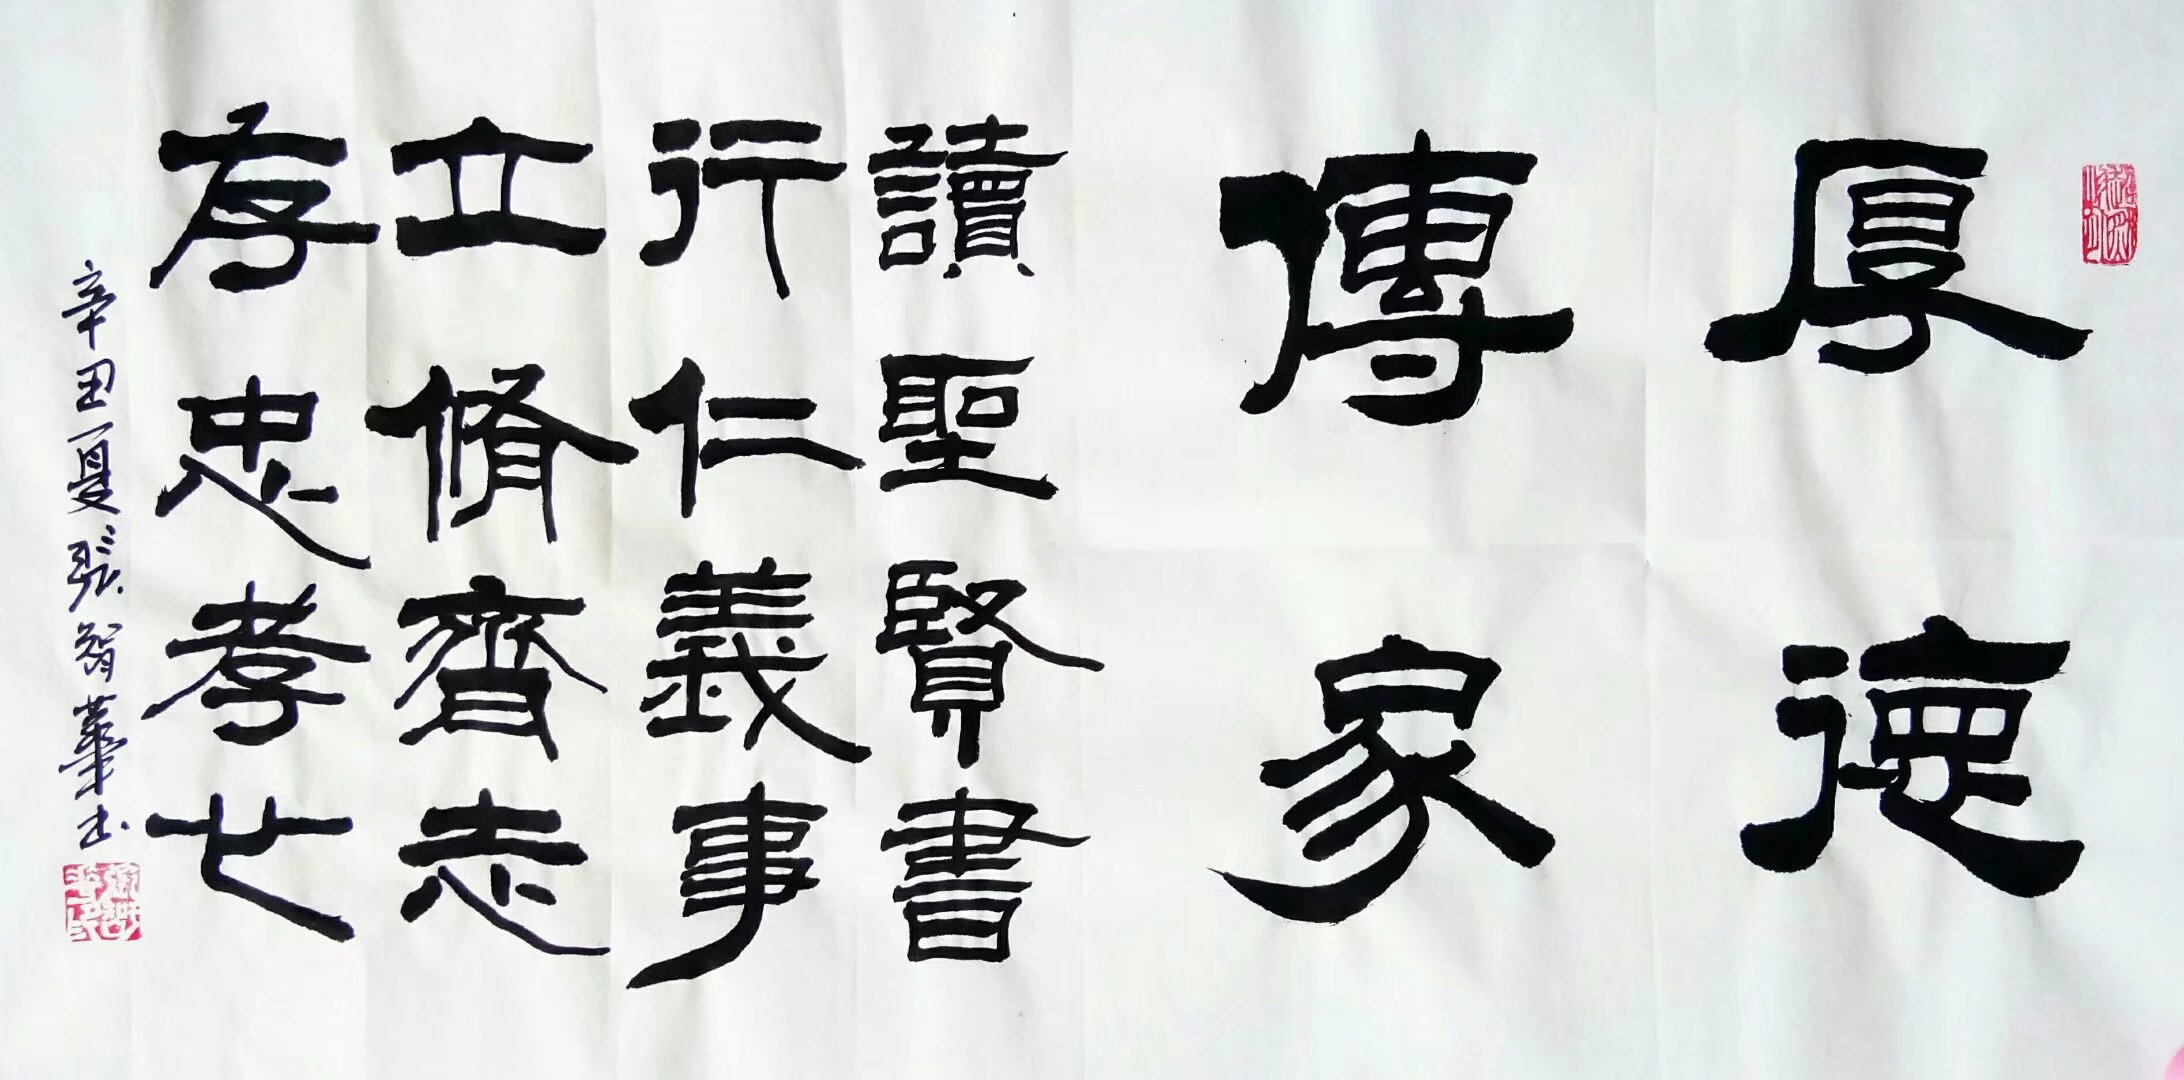 厚德
傳家
讀聖賢書
行仁義事
立脩齊志
存忠孝心
辛丑夏張智華书